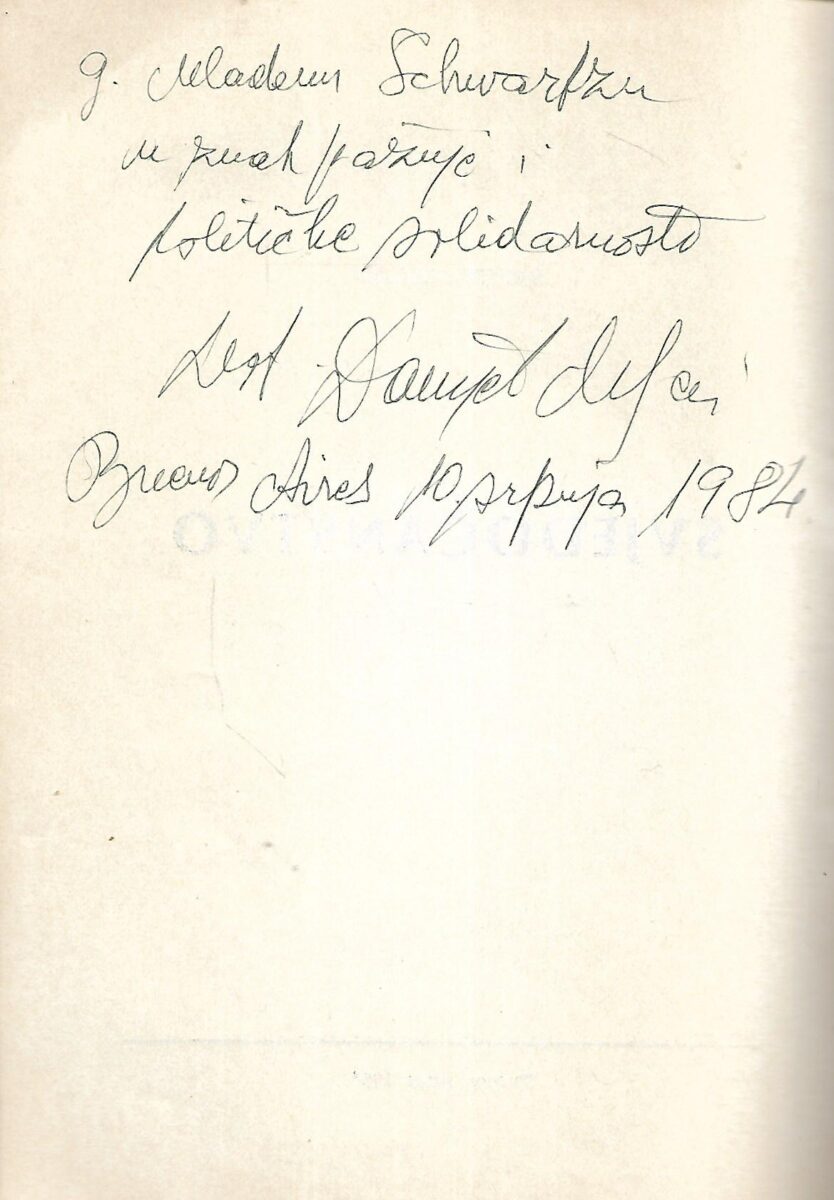 g. Mladenu Schwartzu
u znak pažnje i
političke solidarnosti
Danijel Crljen
Buenos Aires 10 srpnja 1984